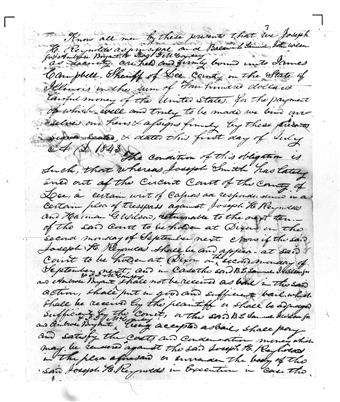 Know all men by these presents that we Joseph
H. Reynolds as principal and
as security are held and firmly bound unto James
Campbell, Sheriff of Lee County in the State of
Illinois in the sum of hundred dollars
lawful money of the United States for the payment
of which well and truly to be made we bind our
selves our heirs & assigns firmly by these presents
sealed & dated this first day of July
A.D. 1843
The condition of this obligation is
such, that whereas Joseph Smith has lately
sued out of the Circuit Court of the County of
Lee a certain writ of Capias ad respondendum in a
certain plea of trespass against Joseph H Reynolds
and Harmon T Wilson, returnable to the next term
of the said Court to be holden at Dixon on the
second monday of September next. Now if the said
Joseph H. Reynolds shall be and appear at said
Court to be holden at Dixon on second monday of
September next and in case the said
shall not be received as bail in the said
action, shall put in good and sufficient bail which
shall be received by the plaintiff or shall be adjudged
sufficient by the Court, or the said
being accepted as bail shall pay
and satisfy the costs and condemnation money which
may be rendered against the said Joseph H. Reynolds
in the plea aforesaid or surrender the body of the
said Joseph H. Reynolds in execution in case the